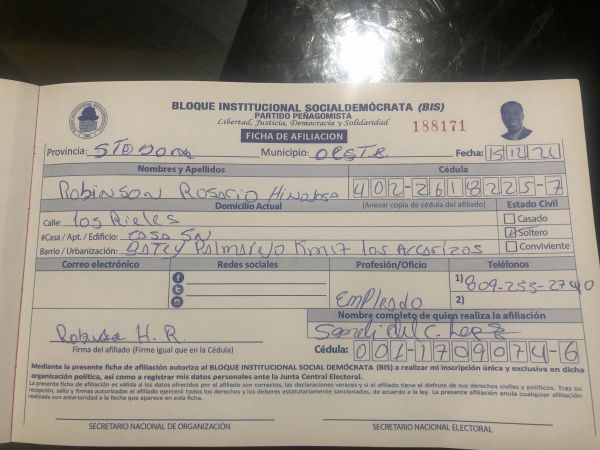 BLOQUE INSTITUCIONAL SOCIALDEMÓCRATA (BIS)
PARTIDO PEÑAGOMISTA
Libertad, Justicia, Democracia y Solidaridad
188171
FICHA DE AFILIACION
Provincia: STO DOMG Municipio: OESTE Fecha: 15/12/21
Nombres y Apellidos Cédula
Robinson Rosario Hinojosa 402-2618225-7
Domicilio Actual (Anexar copia de cédula del afiliado) Estado Civil
Calle: Los Rieles Casado
#Casa / Apt. / Edificio: CASA SN Soltero
Barrio / Urbanización: Batey Palmarejo Km 17 Los Alcarrizos Conviviente
Correo electrónico Redes sociales Profesión/Oficio Teléfonos
Empleado 1) 809-253-2740
2)
Nombre completo de quien realiza la afiliación
Robinson H. R.
Firma del afiliado (Firme igual que en la Cédula) Cédula: 001-1709074-6
Mediante la presente ficha de afiliación autorizo al BLOQUE INSTITUCIONAL SOCIAL DEMÓCRATA (BIS) a realizar mi inscripción única y exclusiva en dicha
organización política, así como a registrar mis datos personales ante la Junta Central Electoral.
La presente ficha de afiliación es válida si los datos ofrecidos por el afiliado son correctos, las declaraciones veraces y si el afiliado tiene el disfrute de sus derechos civiles y políticos. Tras su
recepción, sello y firmas autorizadas el afiliado ejercerá todos los derechos y los deberes estatutariamente sancionados, de acuerdo a la ley. La presente afiliación anula cualquier afiliación
realizada con anterioridad a la fecha que aparece en esta ficha.
SECRETARIO NACIONAL DE ORGANIZACIÓN SECRETARIO NACIONAL ELECTORAL